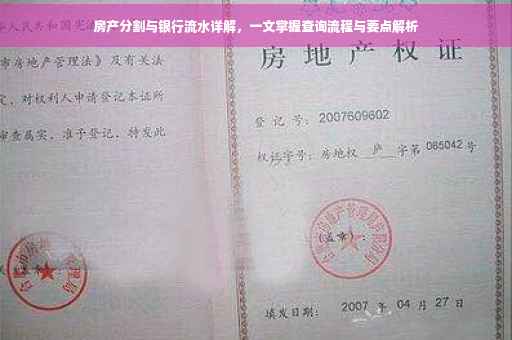 房产分割与银行流水详解，一文掌握查询流程与要点解析
华人民共和国宪
市房地产管理法》及有关法
定，对权利人申请登记本证所
审查属实，准予登记，特发此
房地产权证
登 记 号：2007609602
权证字号：房地权 庐 字第 085042 号
(盖章)：
填发日期：2007 年 04 月 27 日